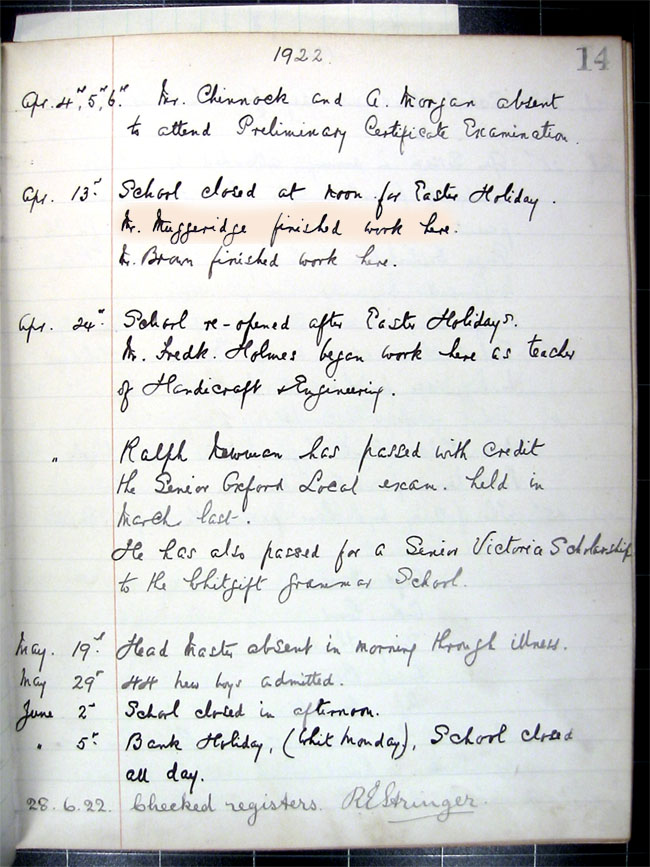 1922.
14
Apr. 4th, 5th, 6th. Mr. Chinnock and A. Morgan absent
to attend Preliminary Certificate Examination.
Apr. 13th School closed at noon for Easter Holiday.
Mr. Muggeridge finished work here.
Mr. Brown finished work here.
Apr. 24th School re-opened after Easter Holidays.
Mr. Fredk. Holmes began work here as teacher
of Handicraft & Engineering.
" Ralph Newman has passed with credit
the Senior Oxford Local exam. held in
March last.
He has also passed for a Senior Victoria Scholarship
to the Whitgift Grammar School.
May. 19th Head Master absent in morning through illness.
May 29th 44 new boys admitted.
June 2nd School closed in afternoon.
" 5th Bank Holiday, (Whit Monday), School closed
all day.
28.6.22. Checked registers. R E Stringer.